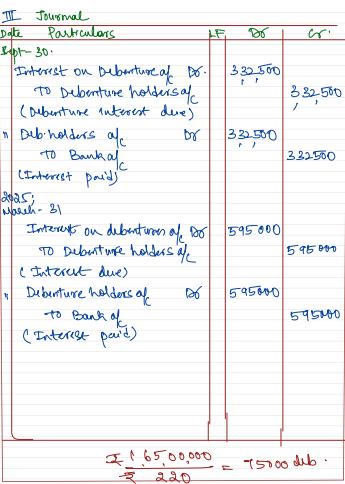 III Journal
Date Particulars LF Dr Cr.
Sept-30.
Interest on Debenture a/c Dr. 3,32,500
To Debenture holders a/c 3,32,500
(Debenture interest due)
" Deb. holders a/c Dr 3,32,500
To Bank a/c 332500
(Interest paid)
2025,
March-31
Interest on debentures a/c Dr 595000
To Debenture holders a/c 595000
(Interest due)
" Debenture holders a/c Dr 595000
To Bank a/c 595000
(Interest paid)
₹ 1,65,00,000
₹ 220
= 75000 deb.